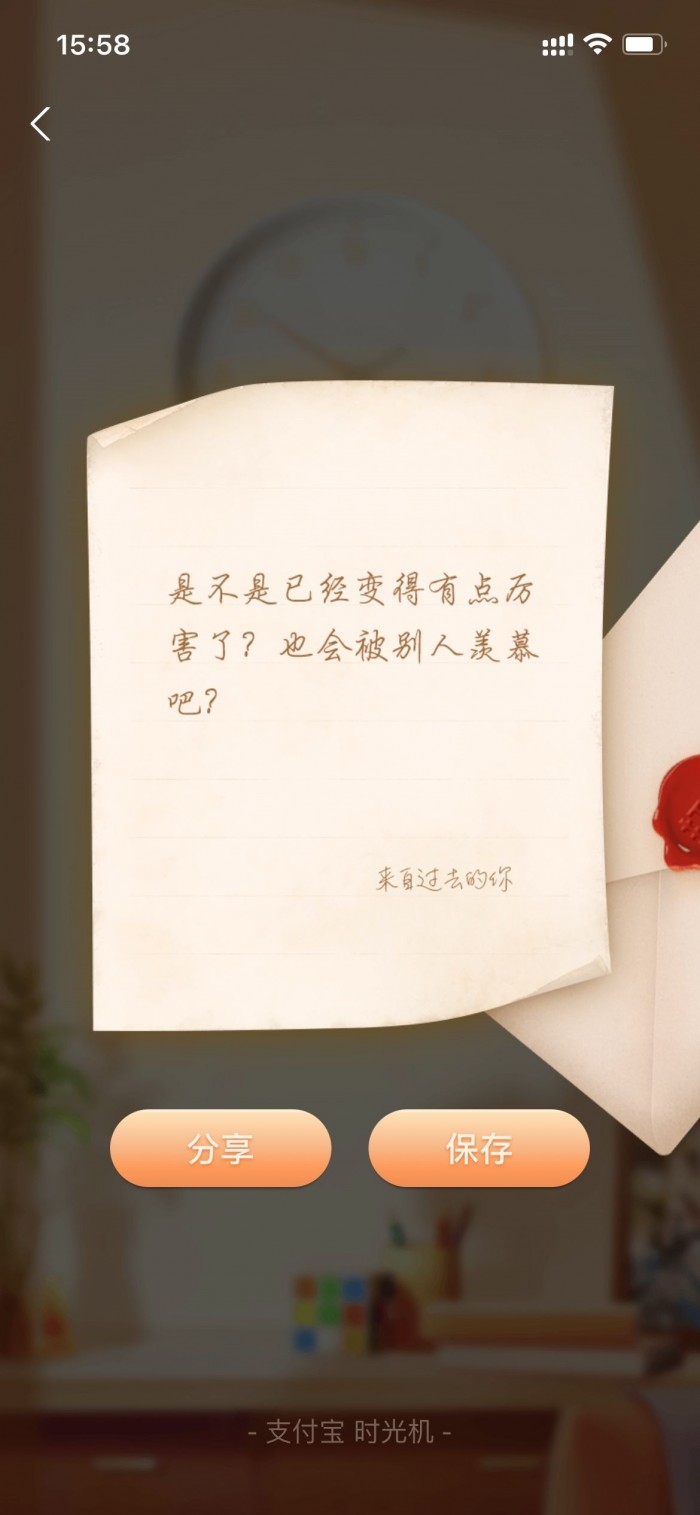 15:58
是不是已经变得有点厉
害了？也会被别人羡慕
吧？
来自过去的你
分享
保存
- 支付宝 时光机 -